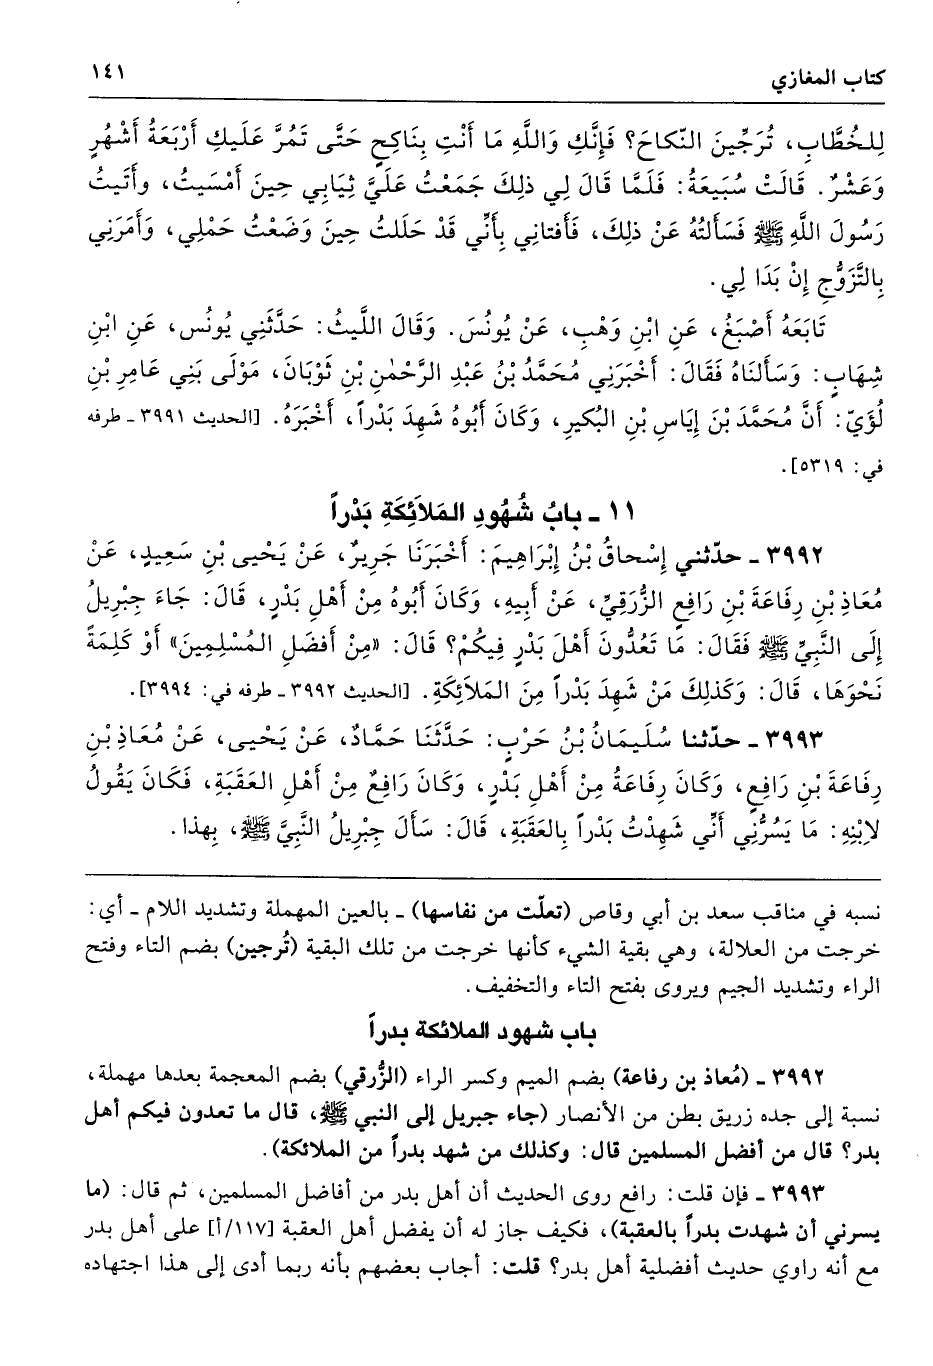 كتاب المغازي ١٤١
لِلخُطَّابِ، تُرَجِّينَ النِّكاحَ؟ فَإِنَّكِ وَاللَّهِ مَا أَنْتِ بِنَاكِحٍ حَتَّى تَمُرَّ عَلَيكِ أَرْبَعَةُ أَشْهُرٍ
وَعَشْرٌ. قَالَتْ سُبَيعَةُ: فَلَمَّا قَالَ لِي ذلِكَ جَمَعْتُ عَلَيَّ ثِيَابِي حِينَ أَمْسَيتُ، وأَتَيتُ
رَسُولَ اللَّهِ ﷺ فَسَأَلتُهُ عَنْ ذلِكَ، فَأَفتانِي بِأَنِّي قَدْ حَلَلتُ حِينَ وَضَعْتُ حَمْلِي، وَأَمَرَنِي
بِالتَّزَوُّجِ إِنْ بَدَا لِي.
تَابَعَهُ أَصْبَغُ، عَنِ ابْنِ وَهْبٍ، عَنْ يُونُسَ. وَقَالَ اللَّيثُ: حَدَّثَنِي يُونُس، عَنِ ابْنِ
شِهَابٍ: وَسَأَلنَاهُ فَقَالَ: أَخْبَرَنِي مُحَمَّدُ بْنُ عَبْدِ الرَّحْمٰنِ بْنِ ثَوْبَانَ، مَوْلَى بَنِي عَامِرِ بْنِ
لُؤَيّ: أَنَّ مُحَمَّدَ بْنَ إِيَاسِ بْنِ البُكَيرِ، وَكَانَ أَبُوهُ شَهِدَ بَدْراً، أَخْبَرَهُ. [الحديث ٣٩٩١ ـ طرفه
في: ٥٣١٩].
١١ ـ بابُ شُهُودِ المَلاَئِكَةِ بَدْراً
٣٩٩٢ ـ حدّثني إِسْحاقُ بْنُ إِبْرَاهِيمَ: أَخْبَرَنَا جَرِيرٌ، عَنْ يَحْيى بْنِ سَعِيدٍ، عَنْ
مُعَاذِ بْنِ رِفَاعَةَ بْنِ رَافِعٍ الزُّرَقِيِّ، عَنْ أَبِيهِ، وَكَانَ أَبُوهُ مِنْ أَهْلِ بَدْرٍ، قَالَ: جَاءَ جِبْرِيلُ
إِلَى النَّبِيِّ ﷺ فَقَالَ: مَا تَعُدُّونَ أَهْلَ بَدْرٍ فِيكُمْ؟ قَالَ: «مِنْ أَفضَلِ المُسْلِمِينَ» أَوْ كَلِمَةً
نَحْوَهَا، قَالَ: وَكَذلِكَ مَنْ شَهِدَ بَدْراً مِنَ المَلاَئِكَةِ. [الحديث ٣٩٩٢ ـ طرفه في: ٣٩٩٤].
٣٩٩٣ ـ حدّثنا سُلَيمَانُ بْنُ حَرْبٍ: حَدَّثَنَا حَمَّادٌ، عَنْ يَحْيى، عَنْ مُعَاذِ بْنِ
رِفَاعَةَ بْنِ رَافِعٍ، وَكَانَ رِفَاعَةُ مِنْ أَهْلِ بَدْرٍ، وَكَانَ رَافِعٌ مِنْ أَهْلِ العَقَبَةِ، فَكَانَ يَقُولُ
لاِبْنِهِ: مَا يَسُرُّنِي أَنِّي شَهِدْتُ بَدْراً بِالعَقَبَةِ، قَالَ: سَأَلَ جِبْرِيلُ النَّبِيَّ ﷺ، بِهذا.
نسبه في مناقب سعد بن أبي وقاص (تعلّت من نفاسها) ـ بالعين المهملة وتشديد اللام ـ أي:
خرجت من العلالة، وهي بقية الشيء كأنها خرجت من تلك البقية (تُرجين) بضم التاء وفتح
الراء وتشديد الجيم ويروى بفتح التاء والتخفيف.
باب شهود الملائكة بدراً
٣٩٩٢ ـ (مُعاذ بن رفاعة) بضم الميم وكسر الراء (الزُّرقي) بضم المعجمة بعدها مهملة،
نسبة إلى جده زريق بطن من الأنصار (جاء جبريل إلى النبي ﷺ، قال ما تعدون فيكم أهل
بدر؟ قال من أفضل المسلمين قال: وكذلك من شهد بدراً من الملائكة).
٣٩٩٣ ـ فإن قلت: رافع روى الحديث أن أهل بدر من أفاضل المسلمين، ثم قال: (ما
يسرني أن شهدت بدراً بالعقبة)، فكيف جاز له أن يفضل أهل العقبة [١١٧/أ] على أهل بدر
مع أنه راوي حديث أفضلية أهل بدر؟ قلت: أجاب بعضهم بأنه ربما أدى إلى هذا اجتهاده